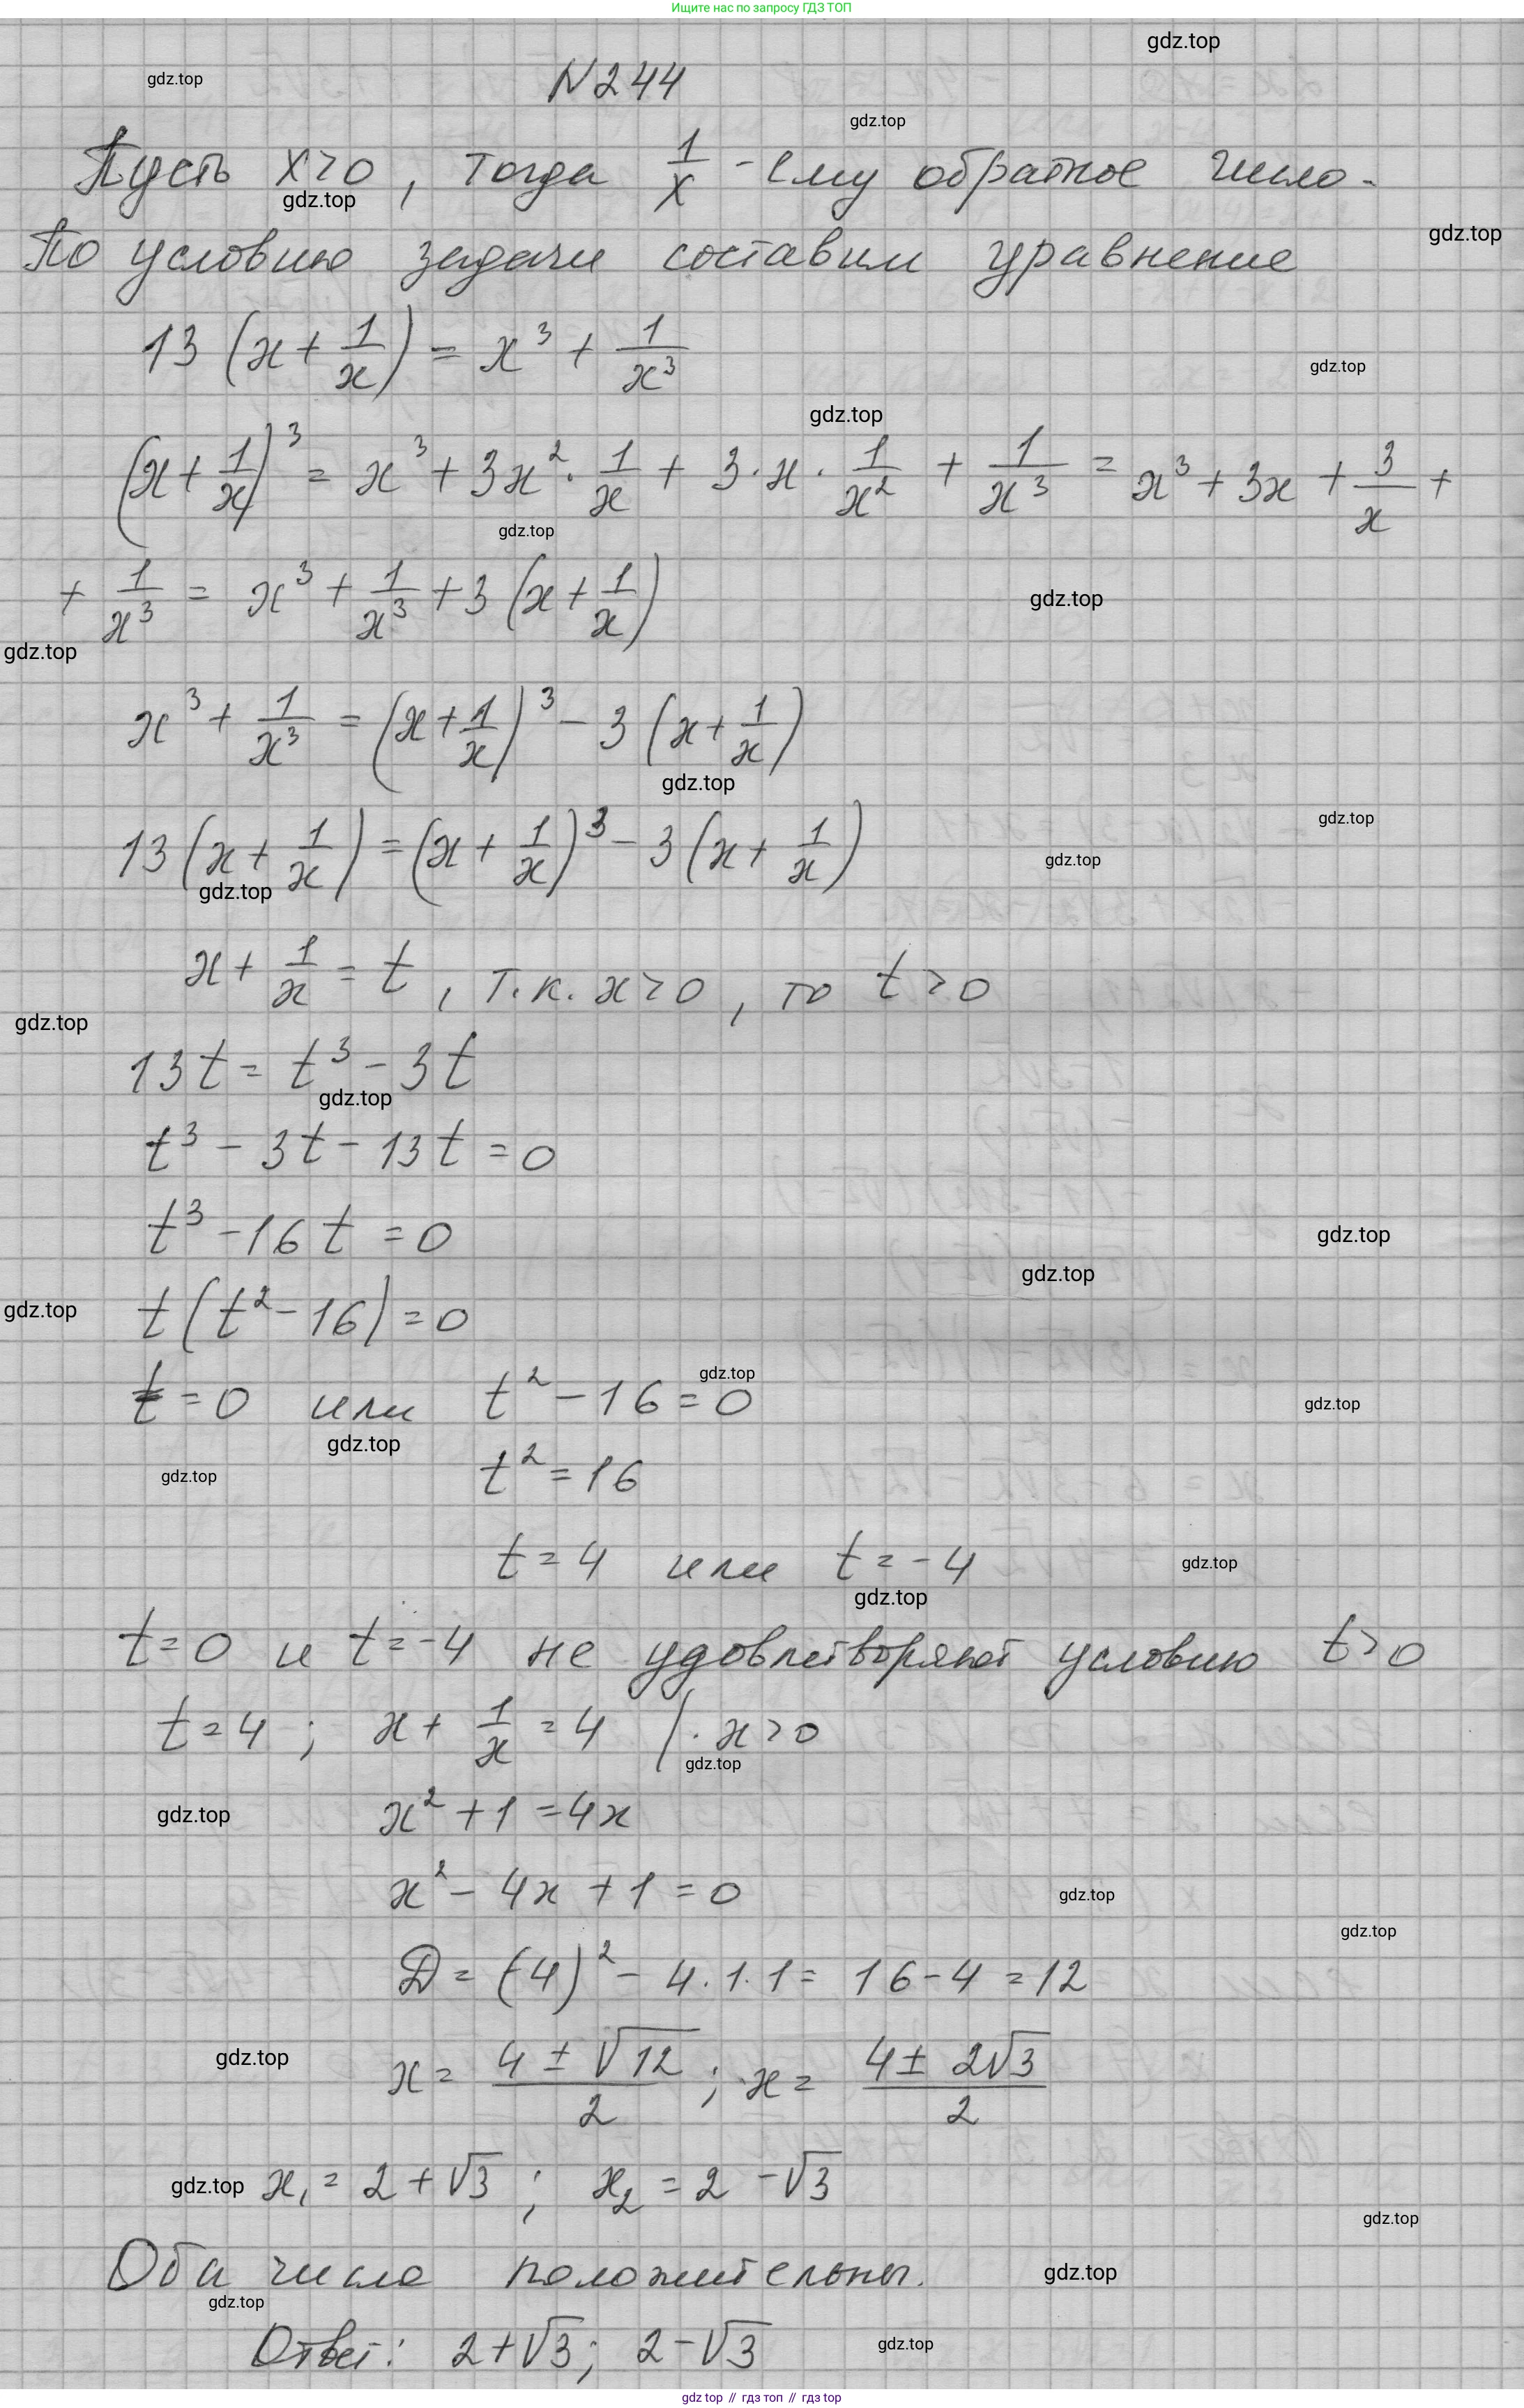 Ищите нас по запросу ГДЗ ТОП
gdz.top
gdz.top
N244
gdz.top
Пусть x>0, тогда 1/x - ему обратное число.
gdz.top
gdz.top
По условию задачи составим уравнение
13(x + 1/x) = x³ + 1/x³
gdz.top
gdz.top
(x + 1/x)³ = x³ + 3x² · 1/x + 3·x · 1/x² + 1/x³ = x³ + 3x + 3/x +
gdz.top
+ 1/x³ = x³ + 1/x³ + 3(x + 1/x)
gdz.top
gdz.top
x³ + 1/x³ = (x + 1/x)³ - 3(x + 1/x)
gdz.top
gdz.top
13(x + 1/x) = (x + 1/x)³ - 3(x + 1/x)
gdz.top
gdz.top
x + 1/x = t, т.к. x>0, то t>0
gdz.top
13t = t³ - 3t
gdz.top
t³ - 3t - 13t = 0
t³ - 16t = 0
gdz.top
gdz.top
gdz.top
t(t² - 16) = 0
gdz.top
t = 0 или t² - 16 = 0
gdz.top
gdz.top
gdz.top
t² = 16
t = 4 или t = -4
gdz.top
gdz.top
t = 0 и t = -4 не удовлетворяют условию t>0
t = 4; x + 1/x = 4 |· x>0
gdz.top
gdz.top
x² + 1 = 4x
x² - 4x + 1 = 0
gdz.top
gdz.top
D = (-4)² - 4·1·1 = 16 - 4 = 12
gdz.top
x = (4 ± √12)/2; x = (4 ± 2√3)/2
gdz.top
x₁ = 2 + √3; x₂ = 2 - √3
gdz.top
Оба числа положительны.
gdz.top
gdz.top
Ответ: 2+√3; 2-√3
gdz.top
gdz top // гдз топ // гдз top